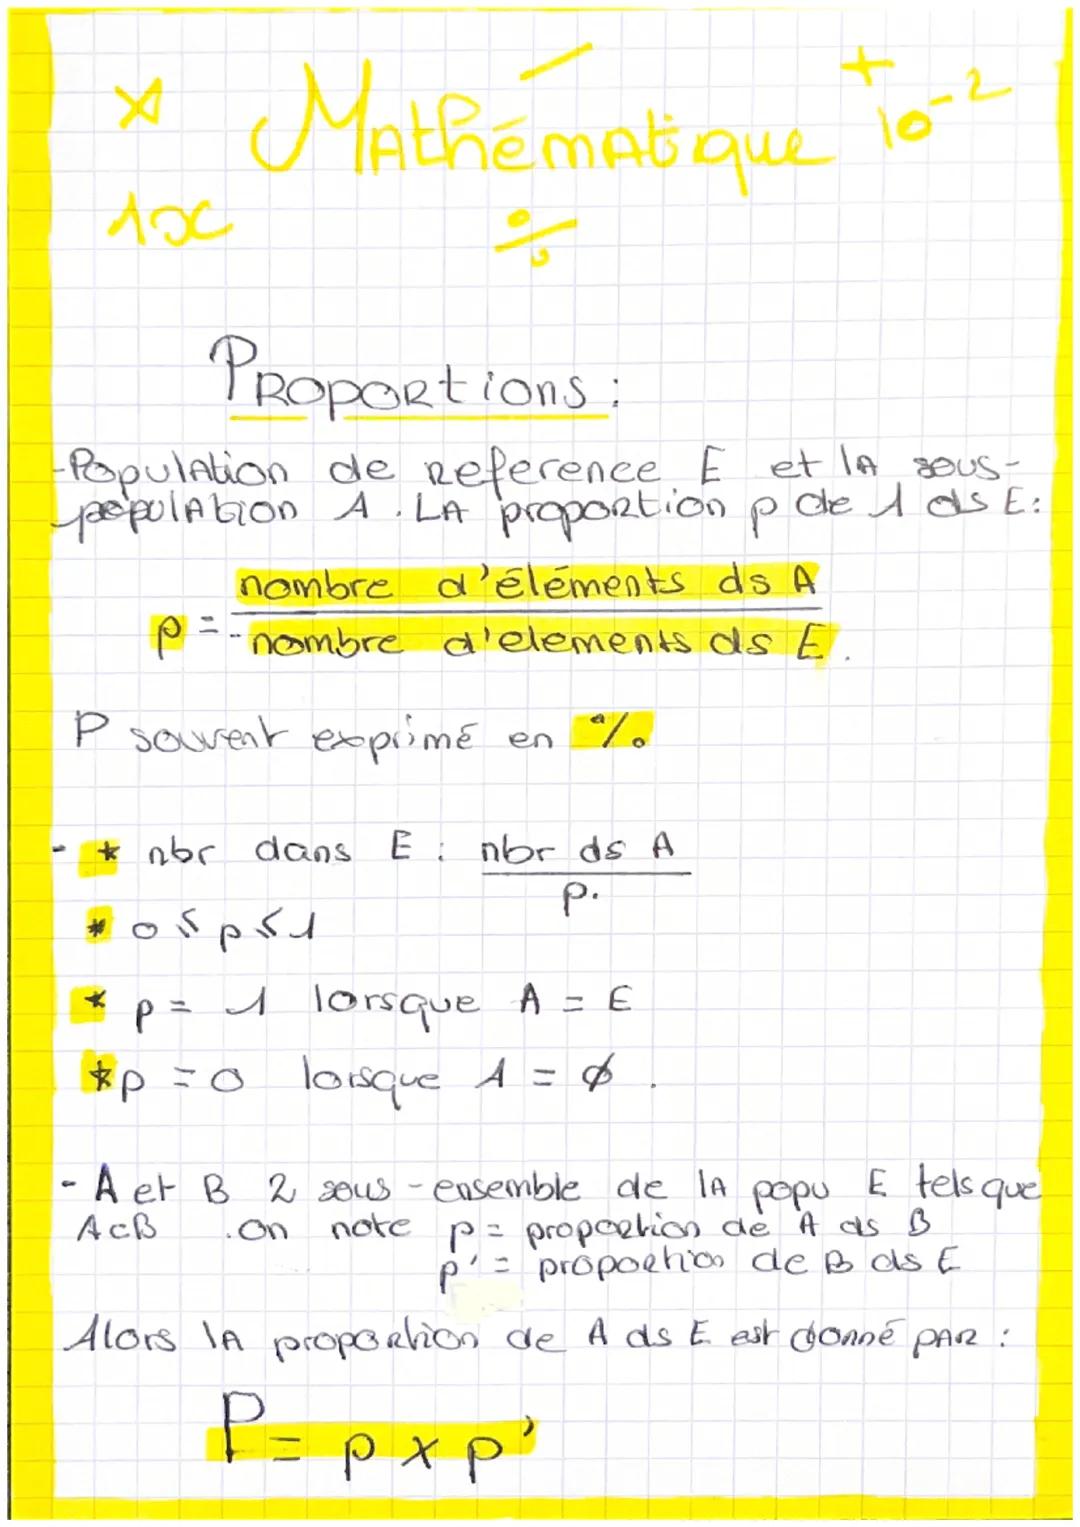 Mathématique
+
10⁻²
1x
÷
Proportions :
-Population de reference E et la sous-
population A. La proportion p de A ds E:
p = nombre d'éléments ds A
nombre d'elements ds E.
P souvent exprimé en %
- * nbr dans E : nbr ds A
p.
* 0 ≤ p ≤ 1
* p = 1 lorsque A = E
* p = 0 lorsque A = ∅.
- A et B 2 sous-ensemble de la popu E tels que
A⊂B. On note p = proportion de A ds B
p' = proportion de B ds E
Alors la proportion de A ds E est donné par :
P = p x p'